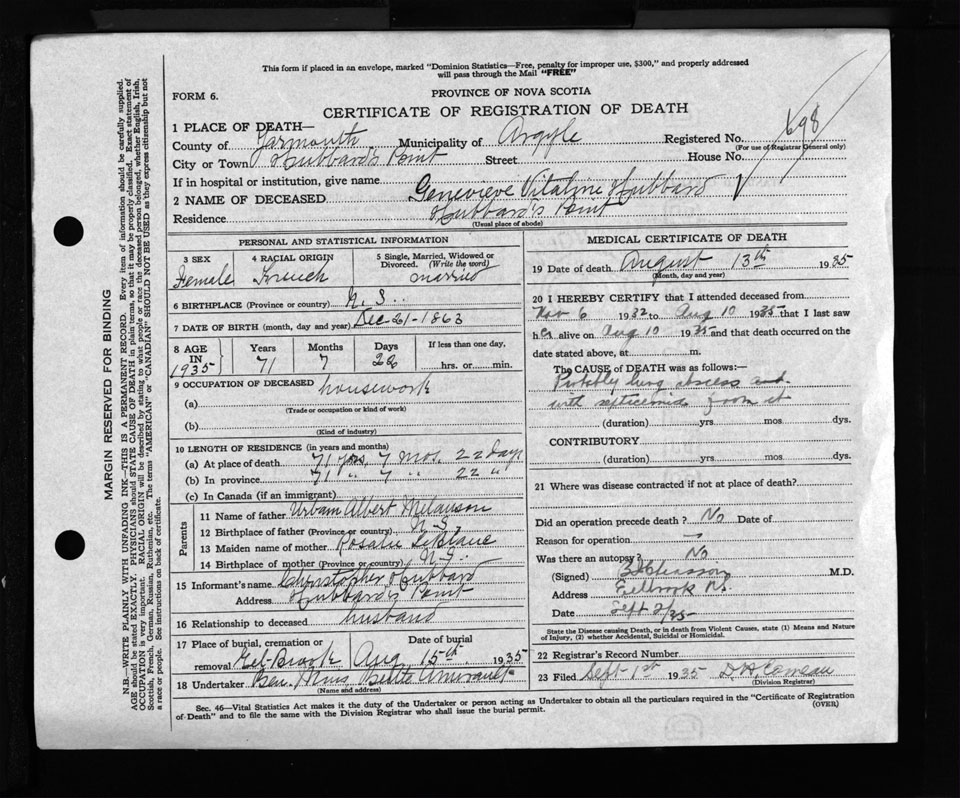 This form if placed in an envelope, marked "Dominion Statistics—Free, penalty for improper use, $300," and properly addressed
will pass through the Mail "FREE"
FORM 6.
PROVINCE OF NOVA SCOTIA
CERTIFICATE OF REGISTRATION OF DEATH
698
1 PLACE OF DEATH—
County of Yarmouth Municipality of Argyle Registered No.
(For use of Registrar General only)
City or Town Hubbard's Point Street House No.
If in hospital or institution, give name
2 NAME OF DECEASED Genevieve Vitaline Hubbard
Residence Hubbard's Point
(Usual place of abode)
PERSONAL AND STATISTICAL INFORMATION
3 SEX 4 RACIAL ORIGIN 5 Single, Married, Widowed or
Divorced. (Write the word)
Female French married
6 BIRTHPLACE (Province or country) N. S.
7 DATE OF BIRTH (month, day and year) Dec-21-1863
8 AGE IN 1935 Years Months Days If less than one day,
71 7 22 hrs. or min.
9 OCCUPATION OF DECEASED housework
(a)
(Trade or occupation or kind of work)
(b)
(Kind of industry)
10 LENGTH OF RESIDENCE (in years and months)
(a) At place of death 71 yrs, 7 mos. 22 days
(b) In province 71 " 7 " 22 "
(c) In Canada (if an immigrant)
Parents
11 Name of father Urbain Albert Melanson
12 Birthplace of father (Province or country) N. S.
13 Maiden name of mother Rosalie LeBlanc
14 Birthplace of mother (Province or country) N. S.
15 Informant's name Christopher Hubbard
Address Hubbard's Point
16 Relationship to deceased husband
17 Place of burial, cremation or Date of burial
removal Eel-Brook Aug 15th 1935
18 Undertaker Ben. Amirault
(Name and address)
MEDICAL CERTIFICATE OF DEATH
19 Date of death August 13th 1935
(Month, day and year)
20 I HEREBY CERTIFY that I attended deceased from
Nov 6 1932 to Aug 10 1935 that I last saw
her alive on Aug 10 1935 and that death occurred on the
date stated above, at m.
The CAUSE of DEATH was as follows:—
Probably lung abscess and
with septicemia from it
(duration) yrs. mos. dys.
CONTRIBUTORY
(duration) yrs. mos. dys.
21 Where was disease contracted if not at place of death?
Did an operation precede death? No Date of
Reason for operation —
Was there an autopsy? No
(Signed) Chiasson M.D.
Address Eelbrook N.S.
Date Sept 2/35
State the Disease causing Death, or in death from Violent Causes, state (1) Means and Nature
of Injury, (2) whether Accidental, Suicidal or Homicidal.
22 Registrar's Record Number
23 Filed Sept 1st 1935 Comeau
(Division Registrar)
Sec. 46—Vital Statistics Act makes it the duty of the Undertaker or person acting as Undertaker to obtain all the particulars required in the "Certificate of Registration
of Death" and to file the same with the Division Registrar who shall issue the burial permit. (OVER)
MARGIN RESERVED FOR BINDING
N.B.—WRITE PLAINLY WITH UNFADING INK—THIS IS A PERMANENT RECORD. Every item of information should be carefully supplied.
AGE should be stated EXACTLY. PHYSICIANS should STATE CAUSE OF DEATH in plain terms, so that it may be properly classified. Exact statement of
OCCUPATION is very important. RACIAL ORIGIN will be described by stating to what people or race the deceased person belonged, whether English, Irish,
Scottish, French, German, Russian, Ruthenian, etc. The terms "AMERICAN" or "CANADIAN" SHOULD NOT BE USED as they express citizenship but not
a race or people. See instructions on back of certificate.